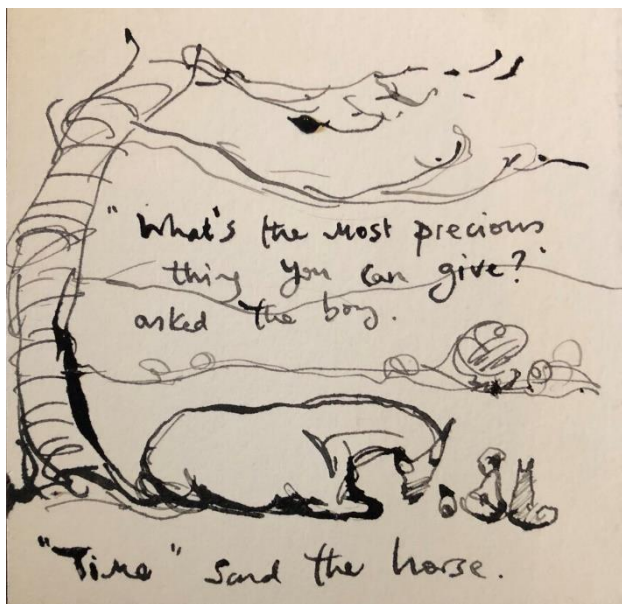 "What's the most precious
thing you can give?"
asked the boy.
"Time" said the horse.